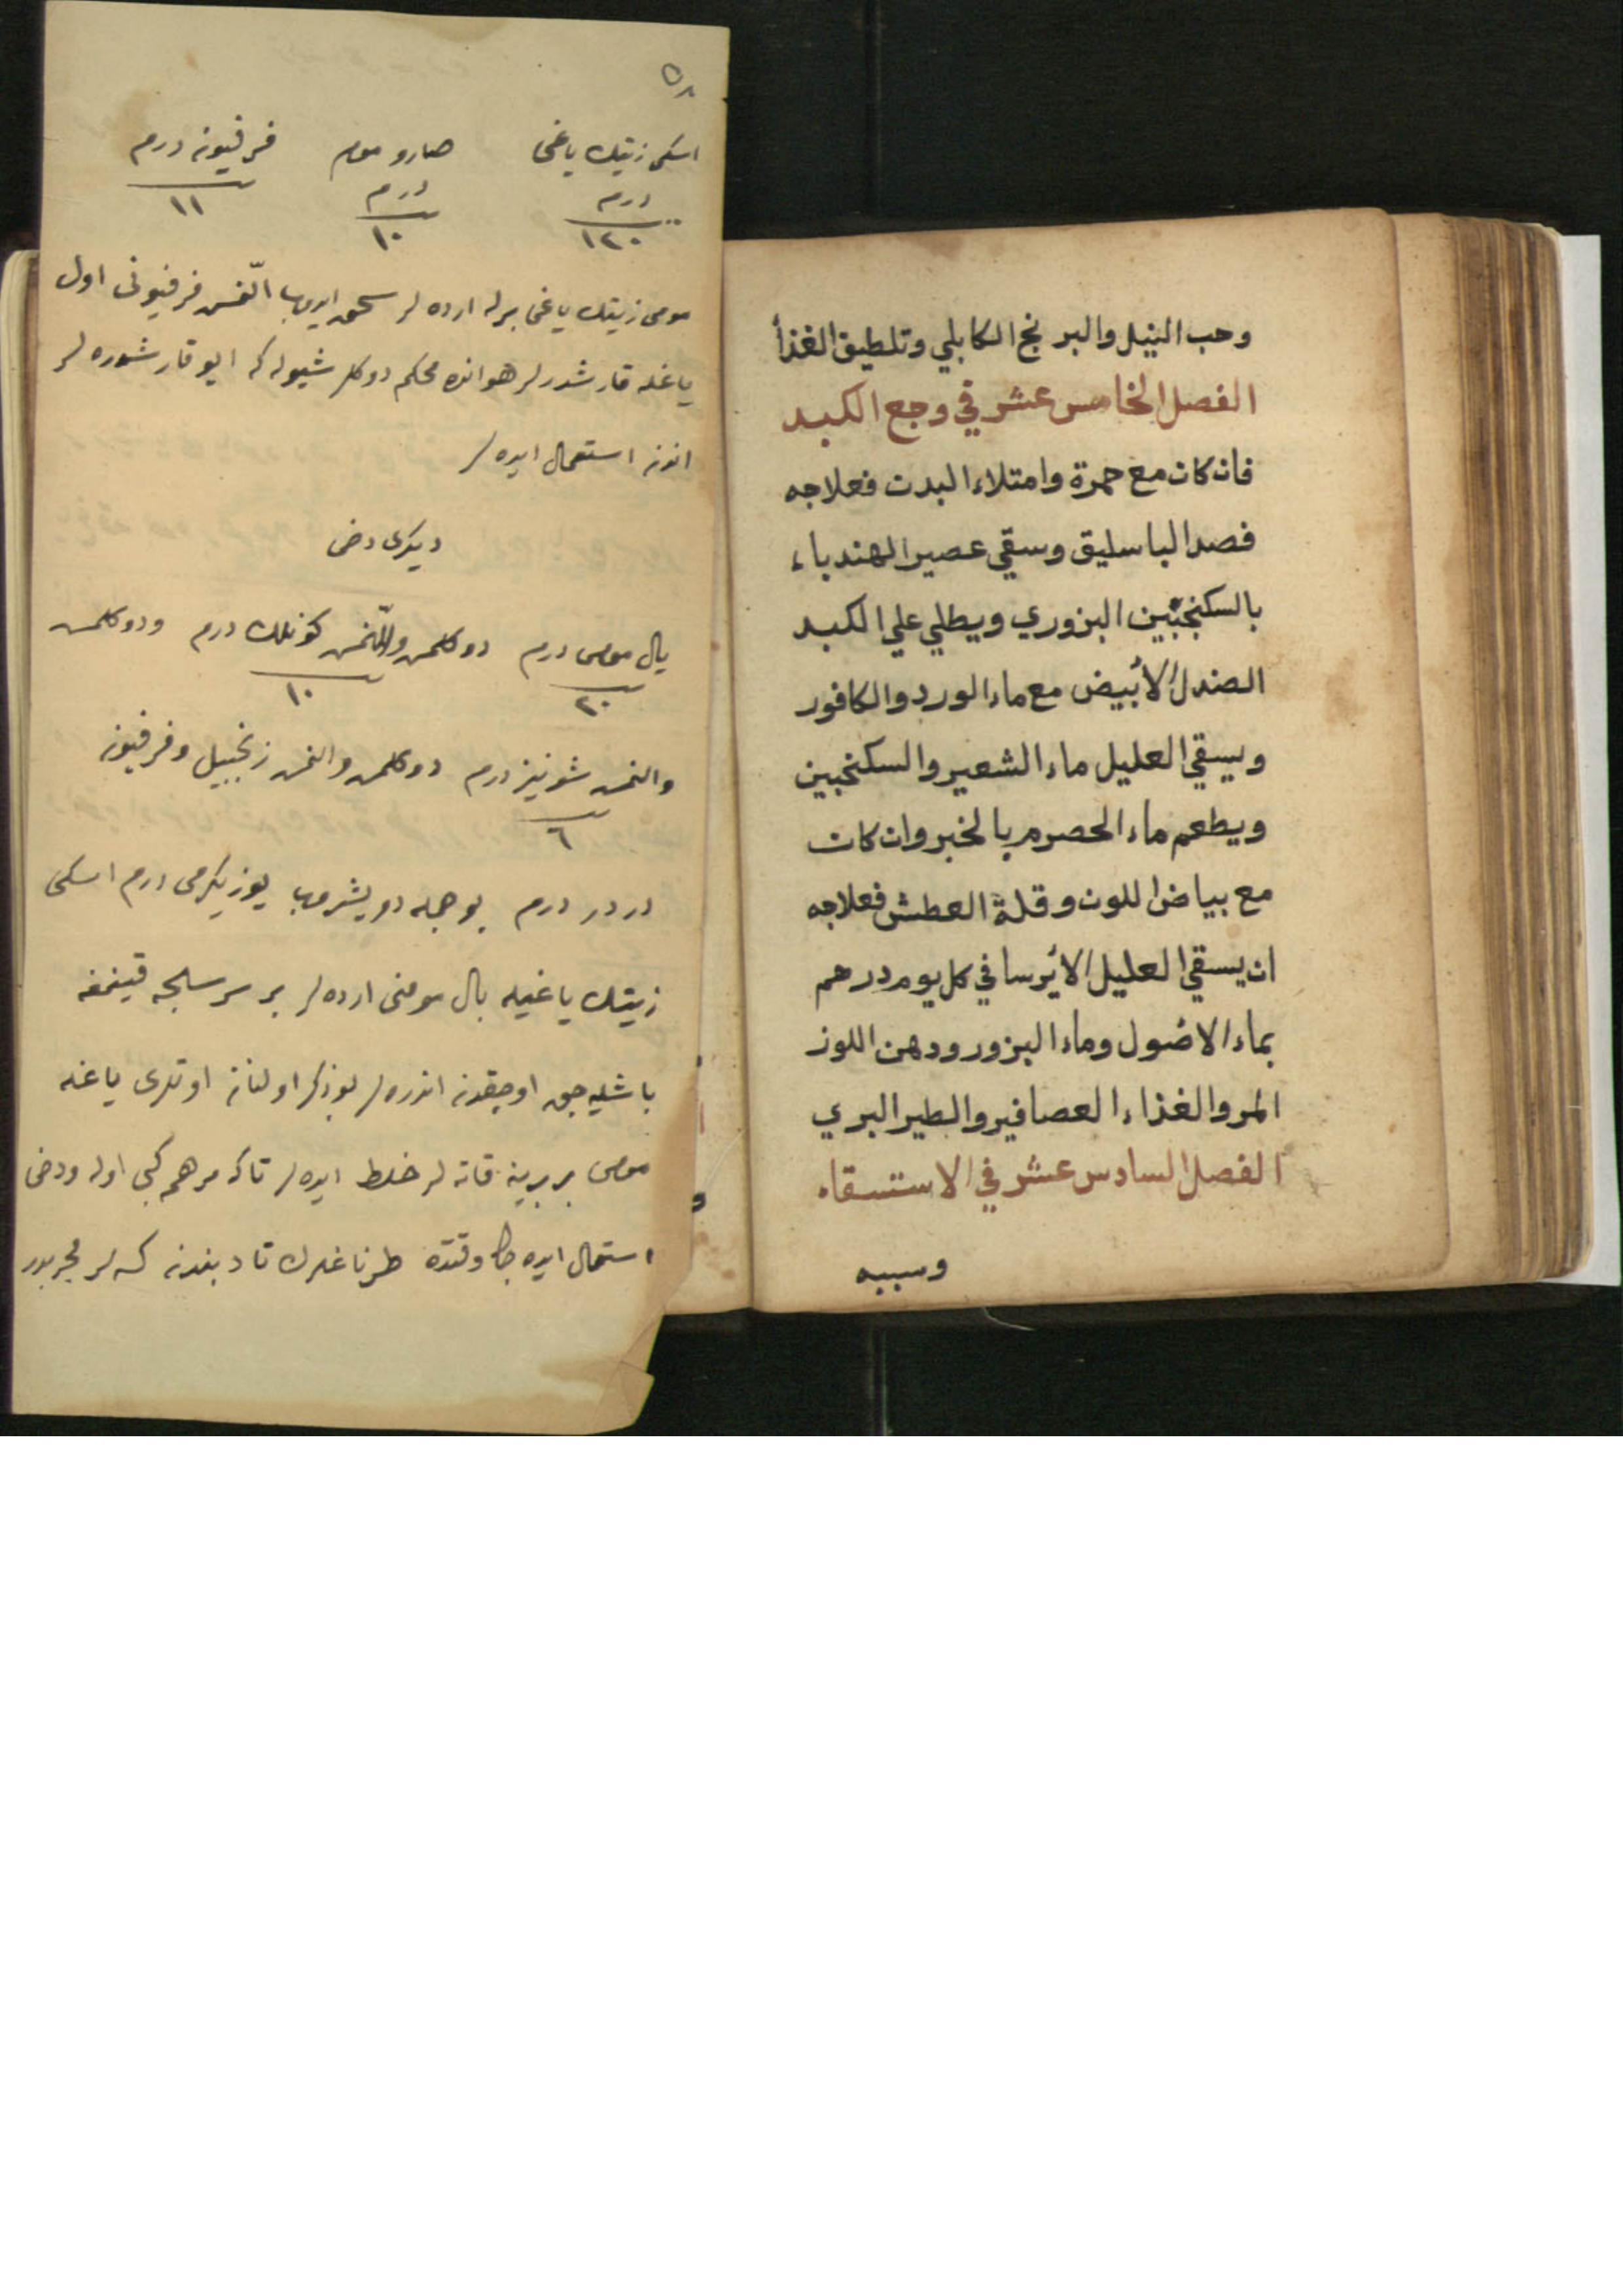 وحب النيل والبرنج الكابلي وتلطيق الغذأ
الفصل الخامس عشر في وجع الكبد
فان كان مع حمرة وامتلاء البدن فعلاجه
فصد الباسليق وسقي عصير الهندباء
بالسكنجبين البزوري ويطلي علي الكبد
الصندل الأبيض مع ماء الورد والكافور
ويسقي العليل ماء الشعير والسكنجبين
ويطعم ماء الحصرم بالخبز وان كان
مع بياض اللون وقلة العطش فعلاجه
ان يسقي العليل الأيرسا في كل يوم درهم
بماء الاصول وماء البزور ودهن اللوز
المر والغذاء العصافير والطير البري
الفصل السادس عشر في الاستسقاء
وسببه
٥٨
اسكى زيتك ياغى صارو موم فرفيونه درم
درم درم
١٢٠ ١٠ ١١
مومى زيتك ياغى برله ارده لر سحق ايدوب النمش فرفيونى اول
ياغله قارشدرلر هوانده محكم دوكلر شيوله كه ايو قارشوره لر
اندن استعمال ايده لر
ديكرى دخى
بال مومى درم دوكلمش والنمش كونلك درم ودوكلمش
٢٠ ١٠
والنمش شونيز درم دوكلمش والنمش زنجبيل وفرفيون
٦
دردر درم بو جمله دويشروب يوز يكرمى درم اسكى
زيتك ياغيله بال مومنى ارده لر بر سرسلجه قينمغه
باشليه جق اوجقدن اندره لر بو ذكر اولنان اوتلرى ياغله
مومى بر برينه قاته لر خلط ايده لر تاكه مرهم كبى اوله ودخى
استعمال ايده جك وقتده طرناغلرك تا دبندن كسه لر مجربدر